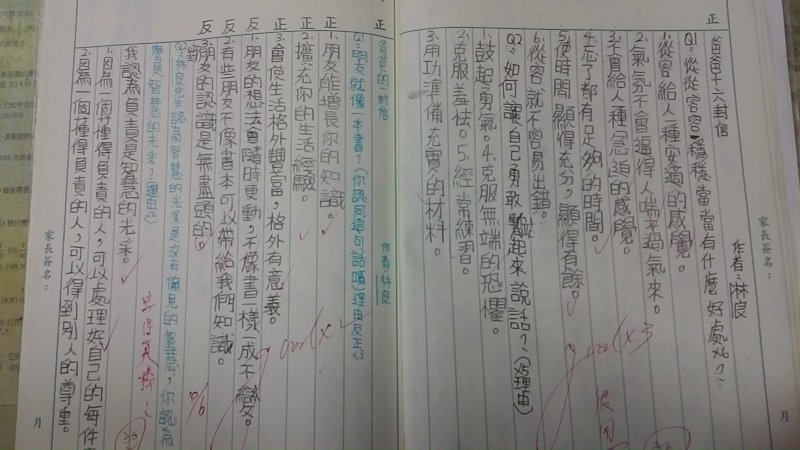 爸爸十六封信
作者:林良
Q1:從從容容、穩穩當當有什麼好處x6?
1.從容給人一種安適的感覺。
2.氣氛不會逼得人喘不過氣來。
3.不會給人一種急迫的感覺。
4.忘了都有足夠的時間。
5.使時間顯得充分,顯得有餘。
6.從容就不容易出錯。
Q2:如何讓自己勇敢站起來說話?(x5理由)
1.鼓起勇氣。4.克服無端的恐懼。
2.克服羞怯。5.經常練習。
3.用功準備充實的材料。
good x3
很用
正
家長簽名:
月
爸爸的一封信
作者:林良
Q1:朋友就像一本書?(你認同這句話嗎)理由反正x3
正1.朋友能增長你的知識。
正2.擴充你的生活經驗。
正3.會使生活格外豐富,格外有意義。
反1.朋友的想法會隨時更動,不像書一樣一成不變。
反2.有些朋友不像書本可以帶給我們知識。
反3.朋友的認識是無盡頭的。
good x2
Q2:林良先生認為智慧的光采是沒有偏見的智慧,你認為
麼是智慧的光采?(理由x2)
我認為負責是智慧的光采。
1.因為一個懂得負責的人,可以處理好自己的每件
2.因為一個懂得負責的人,可以得到別人的尊重。
寫得真棒
正
家長簽名:
月